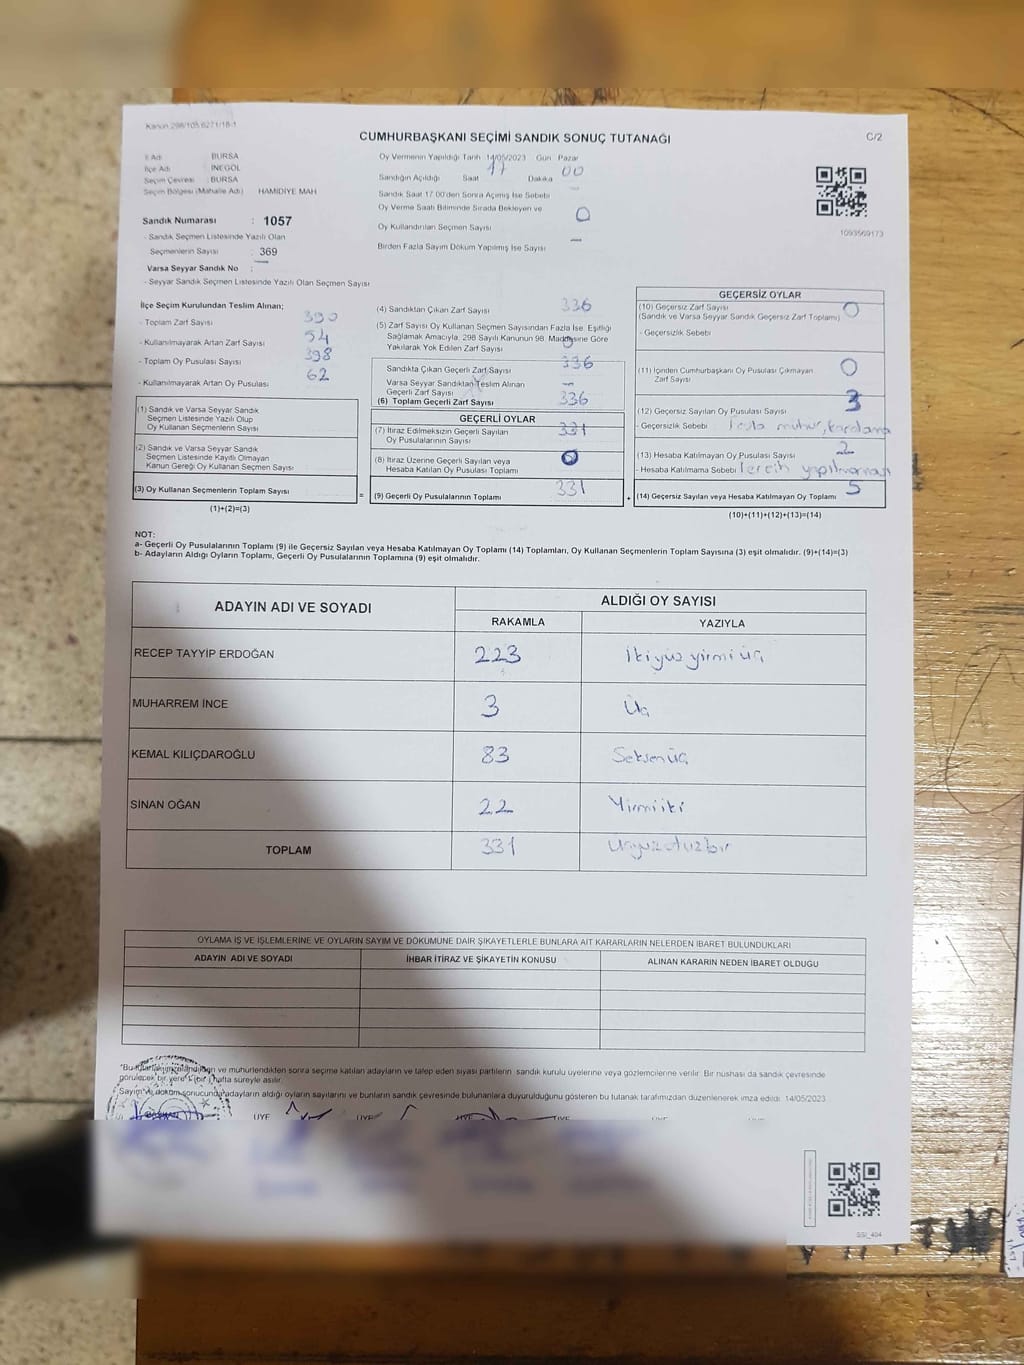 Kanun:298/105 6271/18-1
CUMHURBAŞKANI SEÇİMİ SANDIK SONUÇ TUTANAĞI
C/2
İl Adı BURSA
İlçe Adı İNEGÖL
Seçim Çevresi BURSA
Seçim Bölgesi (Mahalle Adı) HAMIDIYE MAH
Sandık Numarası : 1057
- Sandık Seçmen Listesinde Yazılı Olan
Seçmenlerin Sayısı : 369
Varsa Seyyar Sandık No :
- Seyyar Sandık Seçmen Listesinde Yazılı Olan Seçmen Sayısı
Oy Vermenin Yapıldığı Tarih 14/05/2023 Gün Pazar
Sandığın Açıldığı Saat 17 Dakika 00
Sandık Saat 17.00'den Sonra Açılmış İse Sebebi —
Oy Verme Saati Bitiminde Sırada Bekleyen ve
Oy Kullandırılan Seçmen Sayısı 0
Birden Fazla Sayım Döküm Yapılmış İse Sayısı —
1093569173
İlçe Seçim Kurulundan Teslim Alınan;
- Toplam Zarf Sayısı 390
- Kullanılmayarak Artan Zarf Sayısı 54
- Toplam Oy Pusulası Sayısı 398
- Kullanılmayarak Artan Oy Pusulası 62
(1) Sandık ve Varsa Seyyar Sandık
Seçmen Listesinde Yazılı Olup
Oy Kullanan Seçmenlerin Sayısı
(2) Sandık ve Varsa Seyyar Sandık
Seçmen Listesinde Kayıtlı Olmayan
Kanun Gereği Oy Kullanan Seçmen Sayısı
(3) Oy Kullanan Seçmenlerin Toplam Sayısı
(1)+(2)=(3)
=
(4) Sandıktan Çıkan Zarf Sayısı 336
(5) Zarf Sayısı Oy Kullanan Seçmen Sayısından Fazla İse, Eşitliği
Sağlamak Amacıyla, 298 Sayılı Kanunun 98. Maddesine Göre
Yakılarak Yok Edilen Zarf Sayısı 0
Sandıkta Çıkan Geçerli Zarf Sayısı 336
Varsa Seyyar Sandıktan Teslim Alınan
Geçerli Zarf Sayısı —
(6) Toplam Geçerli Zarf Sayısı 336
GEÇERLİ OYLAR
(7) İtiraz Edilmeksizin Geçerli Sayılan
Oy Pusulalarının Sayısı 331
(8) İtiraz Üzerine Geçerli Sayılan veya
Hesaba Katılan Oy Pusulası Toplamı 0
(9) Geçerli Oy Pusulalarının Toplamı 331
+
GEÇERSİZ OYLAR
(10) Geçersiz Zarf Sayısı 0
(Sandık ve Varsa Seyyar Sandık Geçersiz Zarf Toplamı)
- Geçersizlik Sebebi
(11) İçinden Cumhurbaşkanı Oy Pusulası Çıkmayan
Zarf Sayısı 0
(12) Geçersiz Sayılan Oy Pusulası Sayısı 3
- Geçersizlik Sebebi fazla mühür, karalama
(13) Hesaba Katılmayan Oy Pusulası Sayısı 2
- Hesaba Katılmama Sebebi Tercih yapılmaması
(14) Geçersiz Sayılan veya Hesaba Katılmayan Oy Toplamı 5
(10)+(11)+(12)+(13)=(14)
NOT:
a- Geçerli Oy Pusulalarının Toplamı (9) ile Geçersiz Sayılan veya Hesaba Katılmayan Oy Toplamı (14) Toplamları, Oy Kullanan Seçmenlerin Toplam Sayısına (3) eşit olmalıdır. (9)+(14)=(3)
b- Adayların Aldığı Oyların Toplamı, Geçerli Oy Pusulalarının Toplamına (9) eşit olmalıdır.
ADAYIN ADI VE SOYADI
ALDIĞI OY SAYISI
RAKAMLA YAZIYLA
RECEP TAYYİP ERDOĞAN 223 İkiyüz yirmi üç
MUHARREM İNCE 3 Üç
KEMAL KILIÇDAROĞLU 83 Seksen üç
SİNAN OĞAN 22 Yirmi iki
TOPLAM 331 Üçyüzotuzbir
OYLAMA İŞ VE İŞLEMLERİNE VE OYLARIN SAYIM VE DÖKÜMÜNE DAİR ŞİKAYETLERLE BUNLARA AİT KARARLARIN NELERDEN İBARET BULUNDUKLARI
ADAYIN ADI VE SOYADI İHBAR İTİRAZ VE ŞİKAYETİN KONUSU ALINAN KARARIN NEDEN İBARET OLDUĞU
ve mühürlendikten sonra seçime katılan adayların ve talep eden siyasi partilerin sandık kurulu üyelerine veya gözlemcilerine verilir. Bir nüshası da sandık çevresinde
görülecek bir yere 1 (bir) hafta süreyle asılır.
Sayım ve döküm sonucunda adayların aldığı oyların sayılarını ve bunların sandık çevresinde bulunanlara duyurulduğunu gösteren bu tutanak tarafımızdan düzenlenerek imza edildi. 14/05/2023
ÜYE ÜYE ÜYE ÜYE
SSİ_404